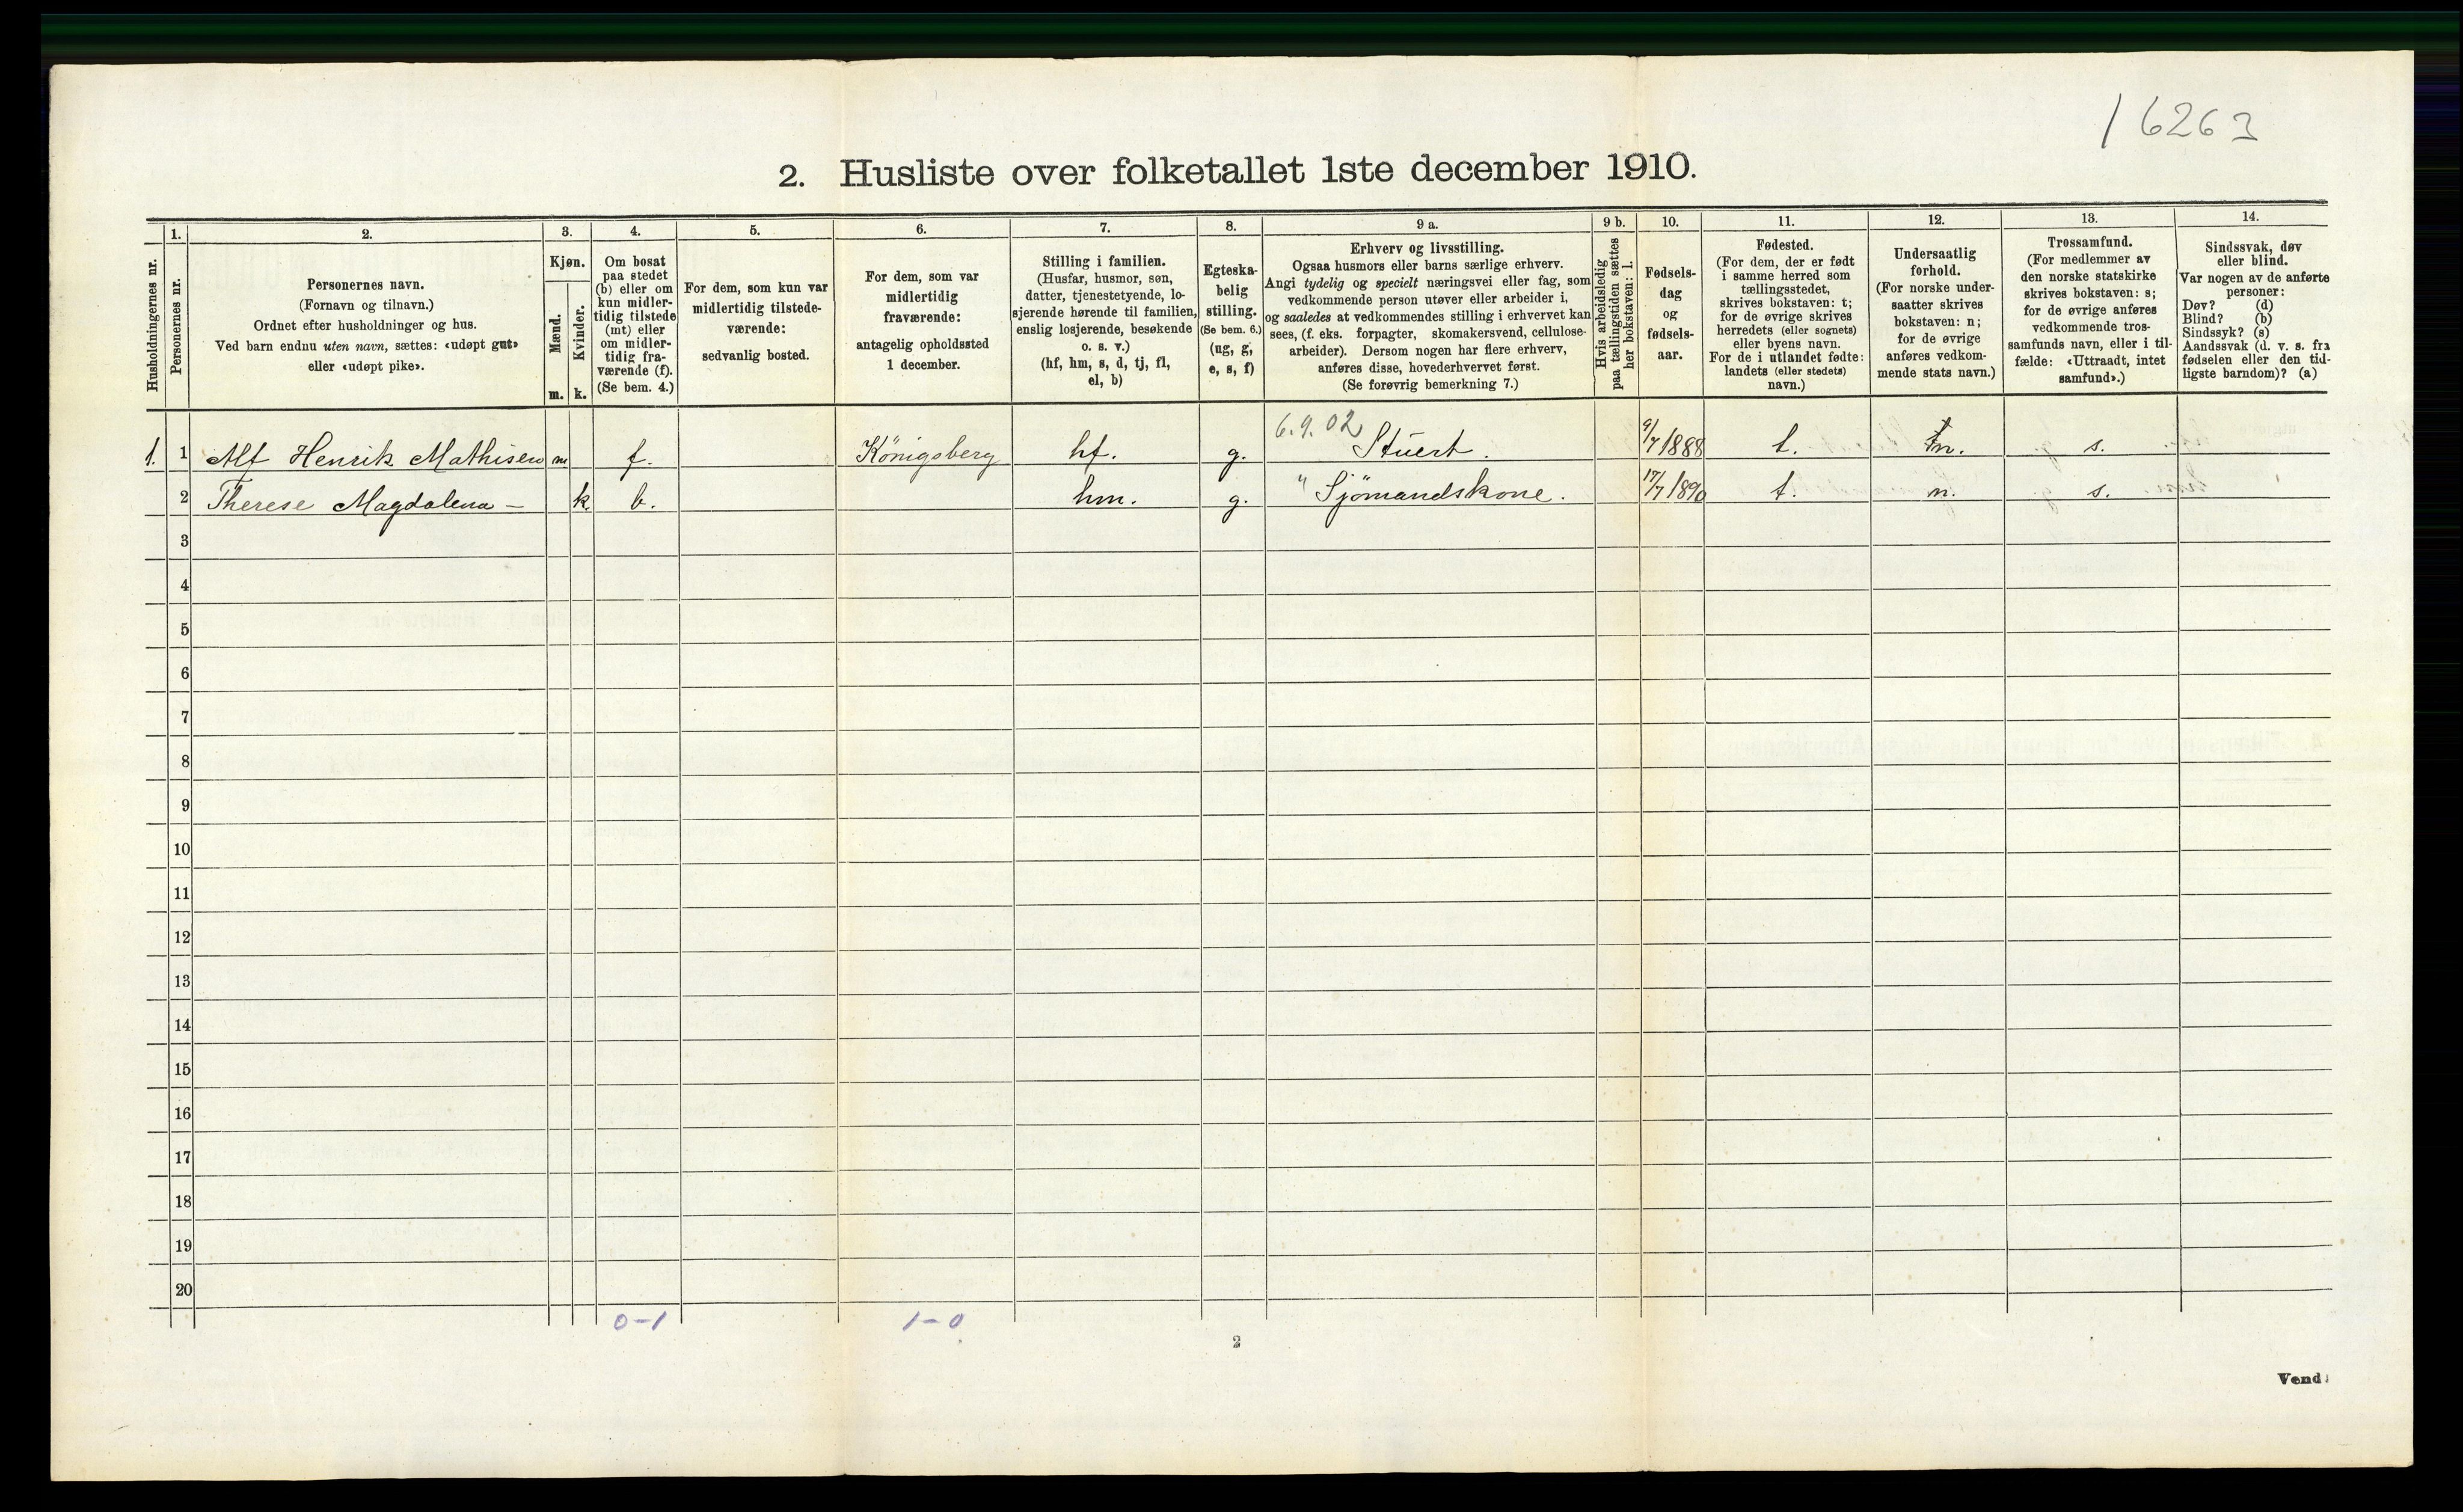 16263
2. Husliste over folketallet 1ste december 1910.
Husholdningernes nr.
1.
Personernes nr.
2.
Personernes navn.
(Fornavn og tilnavn.)
Ordnet efter husholdninger og hus.
Ved barn endnu uten navn, sættes: «udøpt gut»
eller «udøpt pike».
3.
Kjøn.
Mænd.
Kvinder.
m. k.
4.
Om bosat
paa stedet
(b) eller om
kun midler-
tidig tilstede
(mt) eller
om midler-
tidig fra-
værende (f).
(Se bem. 4.)
5.
For dem, som kun var
midlertidig tilstede-
værende:
sedvanlig bosted.
6.
For dem, som var
midlertidig
fraværende:
antagelig opholdssted
1 december.
7.
Stilling i familien.
(Husfar, husmor, søn,
datter, tjenestetyende, lo-
sjerende hørende til familien,
enslig losjerende, besøkende
o. s. v.)
(hf, hm, s, d, tj, fl,
el, b)
8.
Egteska-
belig
stilling.
(Se bem. 6.)
(ug, g,
e, s, f)
9 a.
Erhverv og livsstilling.
Ogsaa husmors eller barns særlige erhverv.
Angi tydelig og specielt næringsvei eller fag, som
vedkommende person utøver eller arbeider i,
og saaledes at vedkommendes stilling i erhvervet kan
sees, (f. eks. forpagter, skomakersvend, cellulose-
arbeider). Dersom nogen har flere erhverv,
anføres disse, hovederhvervet først.
(Se forøvrig bemerkning 7.)
9 b.
Hvis arbeidsledig
paa tællingstiden sættes
her bokstaven: l.
10.
Fødsels-
dag
og
fødsels-
aar.
11.
Fødested.
(For dem, der er født
i samme herred som
tællingsstedet,
skrives bokstaven: t;
for de øvrige skrives
herredets (eller sognets)
eller byens navn.
For de i utlandet fødte:
landets (eller stedets)
navn.)
12.
Undersaatlig
forhold.
(For norske under-
saatter skrives
bokstaven: n;
for de øvrige
anføres vedkom-
mende stats navn.)
13.
Trossamfund.
(For medlemmer av
den norske statskirke
skrives bokstaven: s;
for de øvrige anføres
vedkommende tros-
samfunds navn, eller i til-
fælde: «Uttraadt, intet
samfund».)
14.
Sindssvak, døv
eller blind.
Var nogen av de anførte
personer:
Døv? (d)
Blind? (b)
Sindssyk? (s)
Aandssvak (d. v. s. fra
fødselen eller den tid-
ligste barndom)? (a)
6.9.02
1. 1 Alf Henrik Mathisen m f. Königsberg hf. g. Stuert. 9/7 1888 t. n. s.
2 Therese Magdalena — k. b. hm. g. " Sjömandskone. 17/7 1890 t. n. s.
3
4
5
6
7
8
9
10
11
12
13
14
15
16
17
18
19
20
0-1 1-0
2
Vend